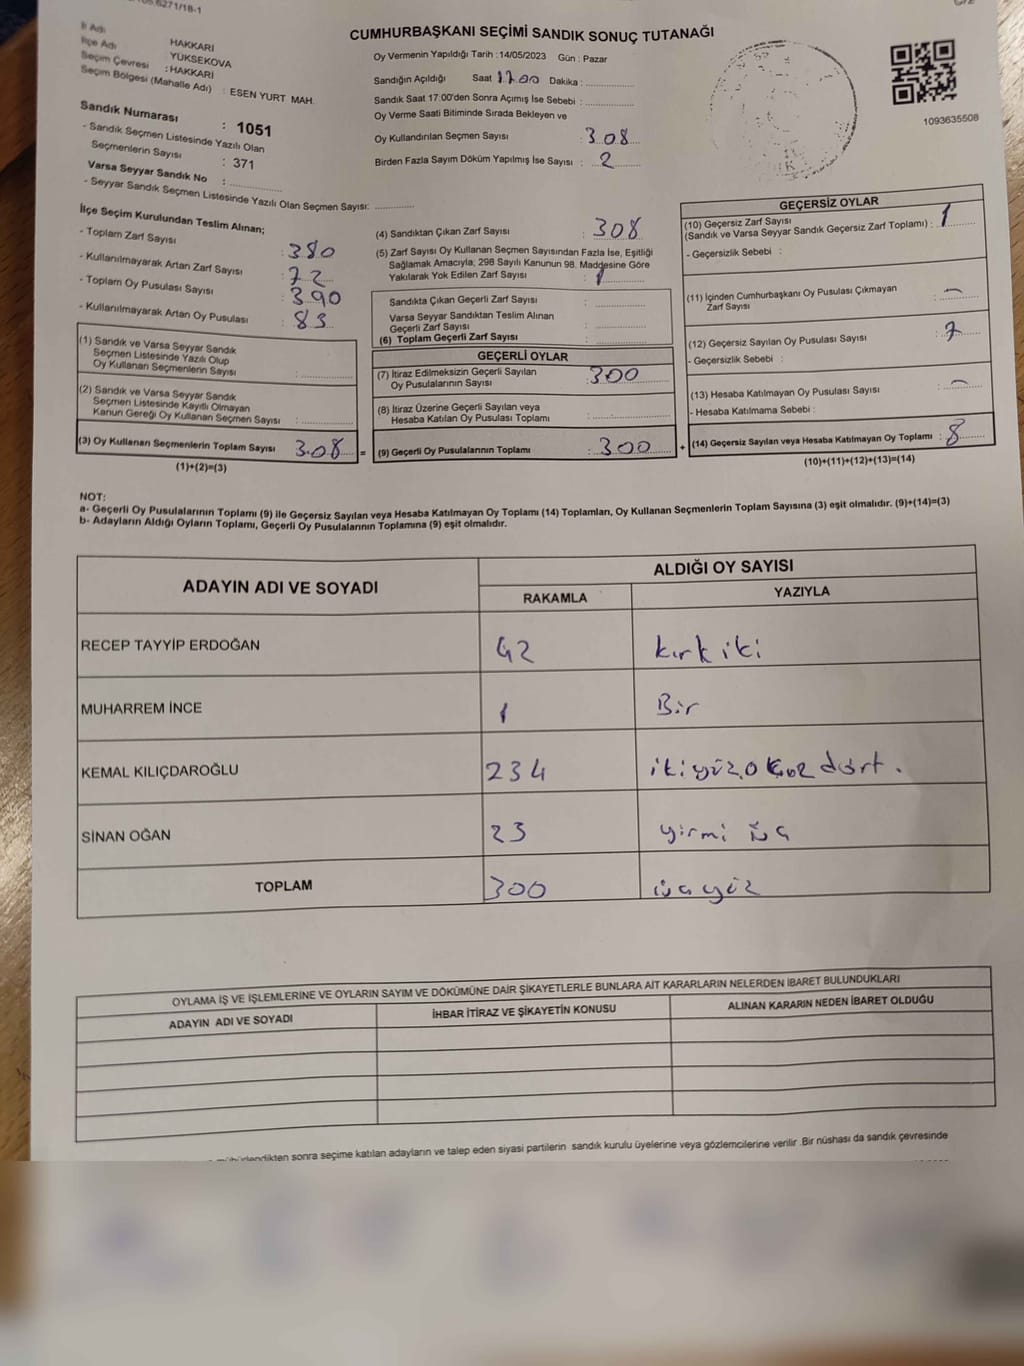 6271/18-1
CUMHURBAŞKANI SEÇİMİ SANDIK SONUÇ TUTANAĞI
İl Adı HAKKARİ
İlçe Adı YÜKSEKOVA
Seçim Çevresi : HAKKARİ
Seçim Bölgesi (Mahalle Adı) : ESEN YURT MAH.
Sandık Numarası : 1051
- Sandık Seçmen Listesinde Yazılı Olan
Seçmenlerin Sayısı : 371
Varsa Seyyar Sandık No :
- Seyyar Sandık Seçmen Listesinde Yazılı Olan Seçmen Sayısı:
Oy Vermenin Yapıldığı Tarih :14/05/2023 Gün : Pazar
Sandığın Açıldığı Saat 17.00 Dakika :
Sandık Saat 17:00'den Sonra Açımış İse Sebebi :
Oy Verme Saati Bitiminde Sırada Bekleyen ve
Oy Kullandırılan Seçmen Sayısı : 308
Birden Fazla Sayım Döküm Yapılmış İse Sayısı : 2
1093635508
İlçe Seçim Kurulundan Teslim Alınan;
- Toplam Zarf Sayısı : 380
- Kullanılmayarak Artan Zarf Sayısı : 72
- Toplam Oy Pusulası Sayısı : 390
- Kullanılmayarak Artan Oy Pusulası : 83
(1) Sandık ve Varsa Seyyar Sandık
Seçmen Listesinde Yazılı Olup
Oy Kullanan Seçmenlerin Sayısı :
(2) Sandık ve Varsa Seyyar Sandık
Seçmen Listesinde Kayıtlı Olmayan
Kanun Gereği Oy Kullanan Seçmen Sayısı :
(3) Oy Kullanan Seçmenlerin Toplam Sayısı 308 =
(1)+(2)=(3)
(4) Sandıktan Çıkan Zarf Sayısı : 308
(5) Zarf Sayısı Oy Kullanan Seçmen Sayısından Fazla İse, Eşitliği
Sağlamak Amacıyla; 298 Sayılı Kanunun 98. Maddesine Göre
Yakılarak Yok Edilen Zarf Sayısı : 1
Sandıkta Çıkan Geçerli Zarf Sayısı :
Varsa Seyyar Sandıktan Teslim Alınan
Geçerli Zarf Sayısı :
(6) Toplam Geçerli Zarf Sayısı :
GEÇERLİ OYLAR
(7) İtiraz Edilmeksizin Geçerli Sayılan
Oy Pusulalarının Sayısı : 300
(8) İtiraz Üzerine Geçerli Sayılan veya
Hesaba Katılan Oy Pusulası Toplamı :
(9) Geçerli Oy Pusulalarının Toplamı : 300 +
GEÇERSİZ OYLAR
(10) Geçersiz Zarf Sayısı
(Sandık ve Varsa Seyyar Sandık Geçersiz Zarf Toplamı) : 1
- Geçersizlik Sebebi :
(11) İçinden Cumhurbaşkanı Oy Pusulası Çıkmayan
Zarf Sayısı : –
(12) Geçersiz Sayılan Oy Pusulası Sayısı : 7
- Geçersizlik Sebebi :
(13) Hesaba Katılmayan Oy Pusulası Sayısı : –
- Hesaba Katılmama Sebebi :
(14) Geçersiz Sayılan veya Hesaba Katılmayan Oy Toplamı : 8
(10)+(11)+(12)+(13)=(14)
NOT:
a- Geçerli Oy Pusulalarının Toplamı (9) ile Geçersiz Sayılan veya Hesaba Katılmayan Oy Toplamı (14) Toplamları, Oy Kullanan Seçmenlerin Toplam Sayısına (3) eşit olmalıdır. (9)+(14)=(3)
b- Adayların Aldığı Oyların Toplamı, Geçerli Oy Pusulalarının Toplamına (9) eşit olmalıdır.
ADAYIN ADI VE SOYADI ALDIĞI OY SAYISI
RAKAMLA YAZIYLA
RECEP TAYYİP ERDOĞAN 42 kırk iki
MUHARREM İNCE 1 Bir
KEMAL KILIÇDAROĞLU 234 ikiyüz otuz dört.
SİNAN OĞAN 23 yirmi üç
TOPLAM 300 üçyüz
OYLAMA İŞ VE İŞLEMLERİNE VE OYLARIN SAYIM VE DÖKÜMÜNE DAİR ŞİKAYETLERLE BUNLARA AİT KARARLARIN NELERDEN İBARET BULUNDUKLARI
ADAYIN ADI VE SOYADI İHBAR İTİRAZ VE ŞİKAYETİN KONUSU ALINAN KARARIN NEDEN İBARET OLDUĞU
mühürlendikten sonra seçime katılan adayların ve talep eden siyasi partilerin sandık kurulu üyelerine veya gözlemcilerine verilir .Bir nüshası da sandık çevresinde